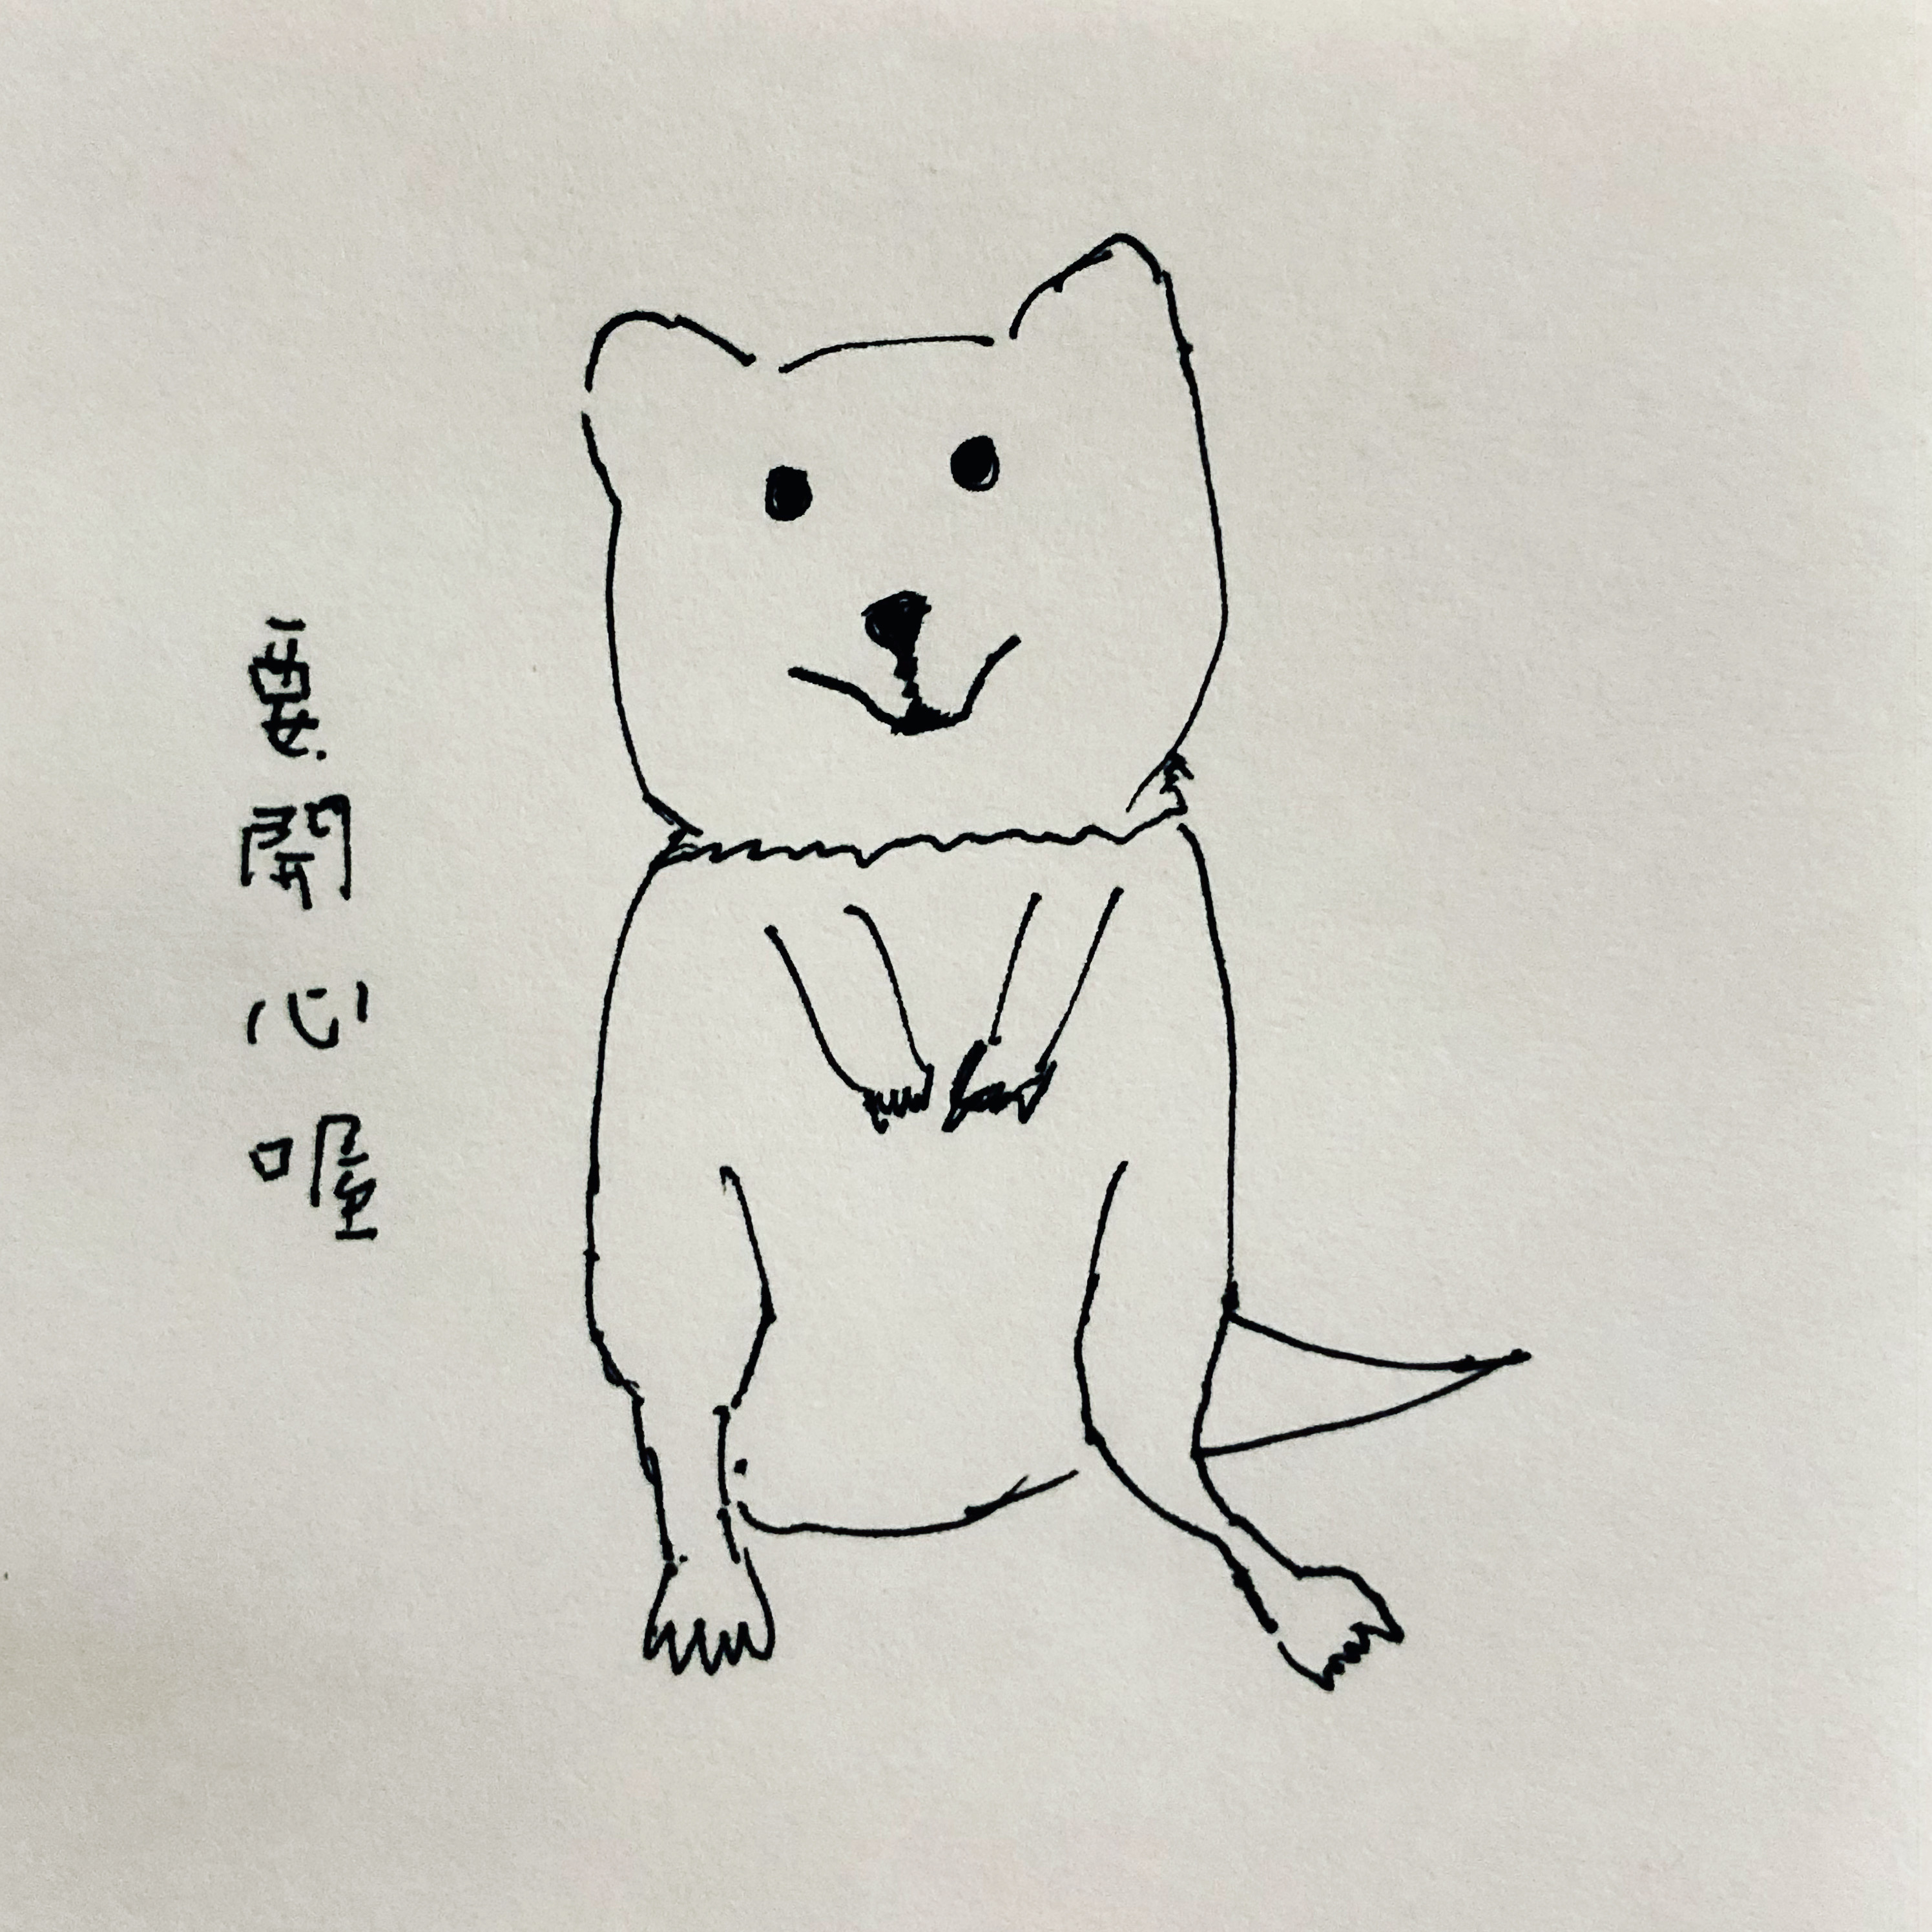 要開心喔